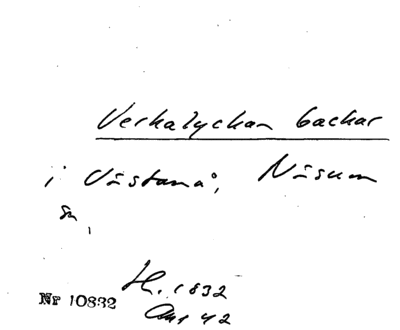 Verkalyckan backar
i Västanå, Näsum
sn,
H. 1832
Nr 10832